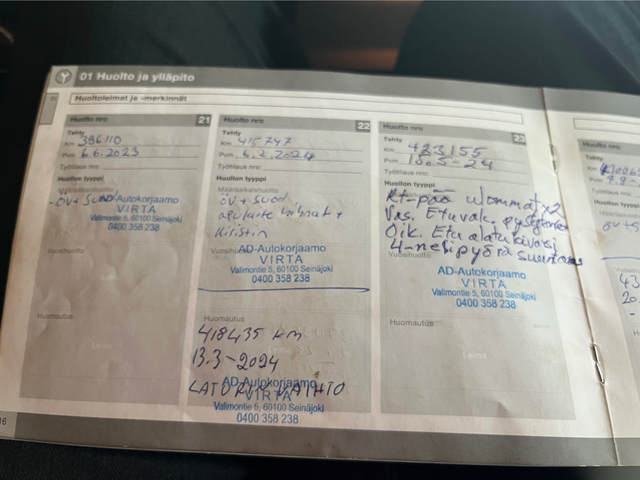 01 Huolto ja ylläpito
Huoltoleimat ja -merkinnät
Huolto nro 21
Tehty
Km 396110
Pvm 6.6.2023
Työtilaus nro
Huollon tyyppi
Määräaikaishuolto
ÖV + Suod
AD-Autokorjaamo
VIRTA
Valimontie 5, 60100 Seinäjoki
0400 358 238
Vuosihuolto
Huomautus
Leima
Huolto nro 22
Tehty
Km 415747
Pvm 6.2.2024
Työtilaus nro
Huollon tyyppi
Määräaikaishuolto
öv + suod
apulaite hihnat +
kiristin
AD-Autokorjaamo
VIRTA
Valimontie 5, 60100 Seinäjoki
0400 358 238
Huomautus
418435 km
13.3-2024
LATURIN VAIHTO
AD-Autokorjaamo
VIRTA
Valimontie 5, 60100 Seinäjoki
0400 358 238
Huolto nro 23
Tehty
Km 423155
Pvm 15.5-24
Työtilaus nro
Huollon tyyppi
Rt-pää ulommat x2
Vas. Etuvak.
Oik. Etu alatukivarsi
4-nelipyörä suuntaus
Vuosihuolto
AD-Autokorjaamo
VIRTA
Valimontie 5, 60100 Seinäjoki
0400 358 238
Huomautus
Leima
Huolto nro
Tehty
Km
Pvm
Työtilaus
Huollon
öv + s
43
20.